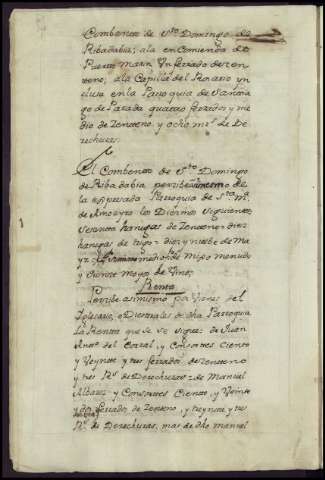 Combento de Sto Domingo de
Ribadabia; a la encomienda de
Puerto marin Un ferrado de zen
teno; a la Capilla del Rosario yn
clusa en la Parroquia de Santia
go de Parada quatro ferrados y me
dio de Zenteno, y ocho mrs de De
rechuras.
El Combento de Sto Domingo
de Ribadabia perzibe de
la expresada Parroquia de Sta Ma
de Amoeyro los Diezmos siguientes
sesenta hanegas de Zenteno = diez
hanegas de trigo = diez y nuebe de Ma
yz = de mijo menudo
y ciento moyos de Vino
Renta
Perzibe asimismo por Varios del
Iglesario, o Diestrales de dha Parroquia
La Renta que se ve sigue = de Juan
Anto del Corral, y Consortes Ciento
y Veynte y tres ferrados de zenteno
y tres Rs de Derechuras = de Manuel
Albarez y Consortes Ciento, y Veinte
y dos ferrados de Zenteno, y treynta y tres
Rs de Derechuras, mas de dho Manuel